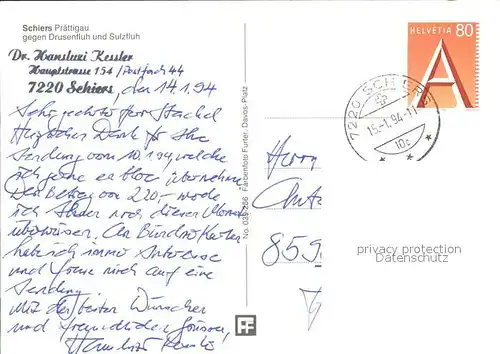 Schiers Prättigau
gegen Drusenfluh und Sulzfluh
HELVETIA 80
A
Dr. Hansluzi Kessler
Hauptstrasse 154 / Postfach 44
7220 Schiers, den 14.1.94
7220 SCHIERS
15.-1.94-11
Sehr geehrter Herr Stachel
Herzlichen Dank für Ihre
Sendung vom 10.1.94, welche
ich gerne en bloc übernehme.
Den Betrag von 220.- werde
ich Ihnen noch diesen Monat
überweisen. An Bündner Karten
habe ich immer Interesse
und freue mich auf eine
Sendung.
Mit den besten Wünschen
und freundlichen Grüssen,
Hansluzi Kessler
Herrn
859
No. 039266 Farbenfoto Furter, Davos-Platz
privacy protection
Datenschutz
FF